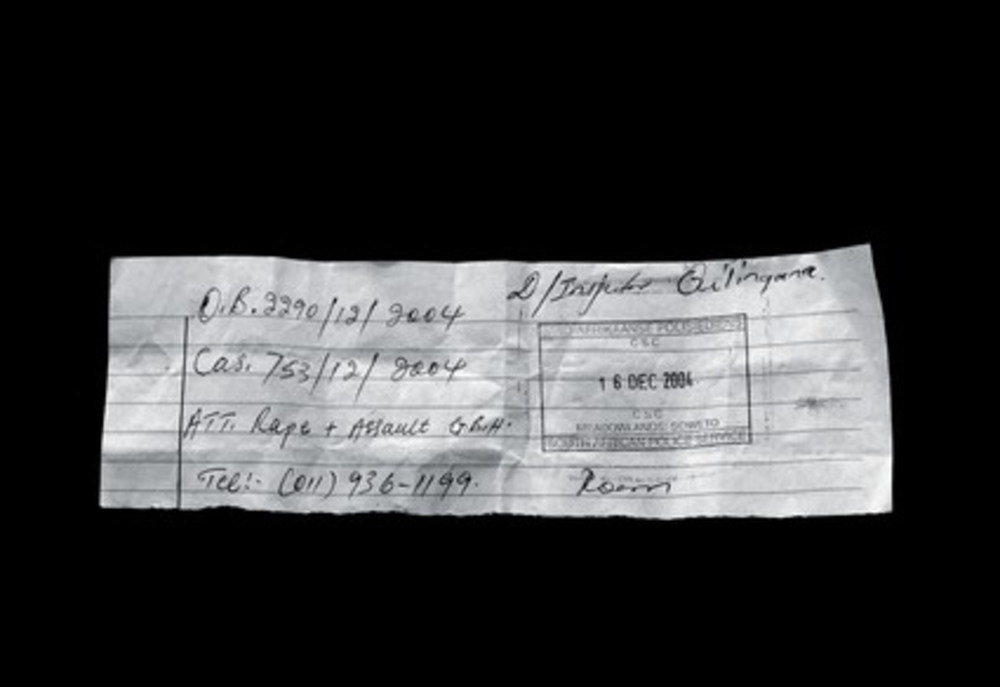 D/Inspector
O.B. 2290/12/2004
Cas. 753/12/2004
ATT. Rape + Assault G.B.H.
Tel:- (011) 936-1199.
SUID-AFRIKAANSE POLISIEDIENS
C S C
16 DEC 2004
C S C
MEADOWLANDS: SOWETO
SOUTH AFRICAN POLICE SERVICE